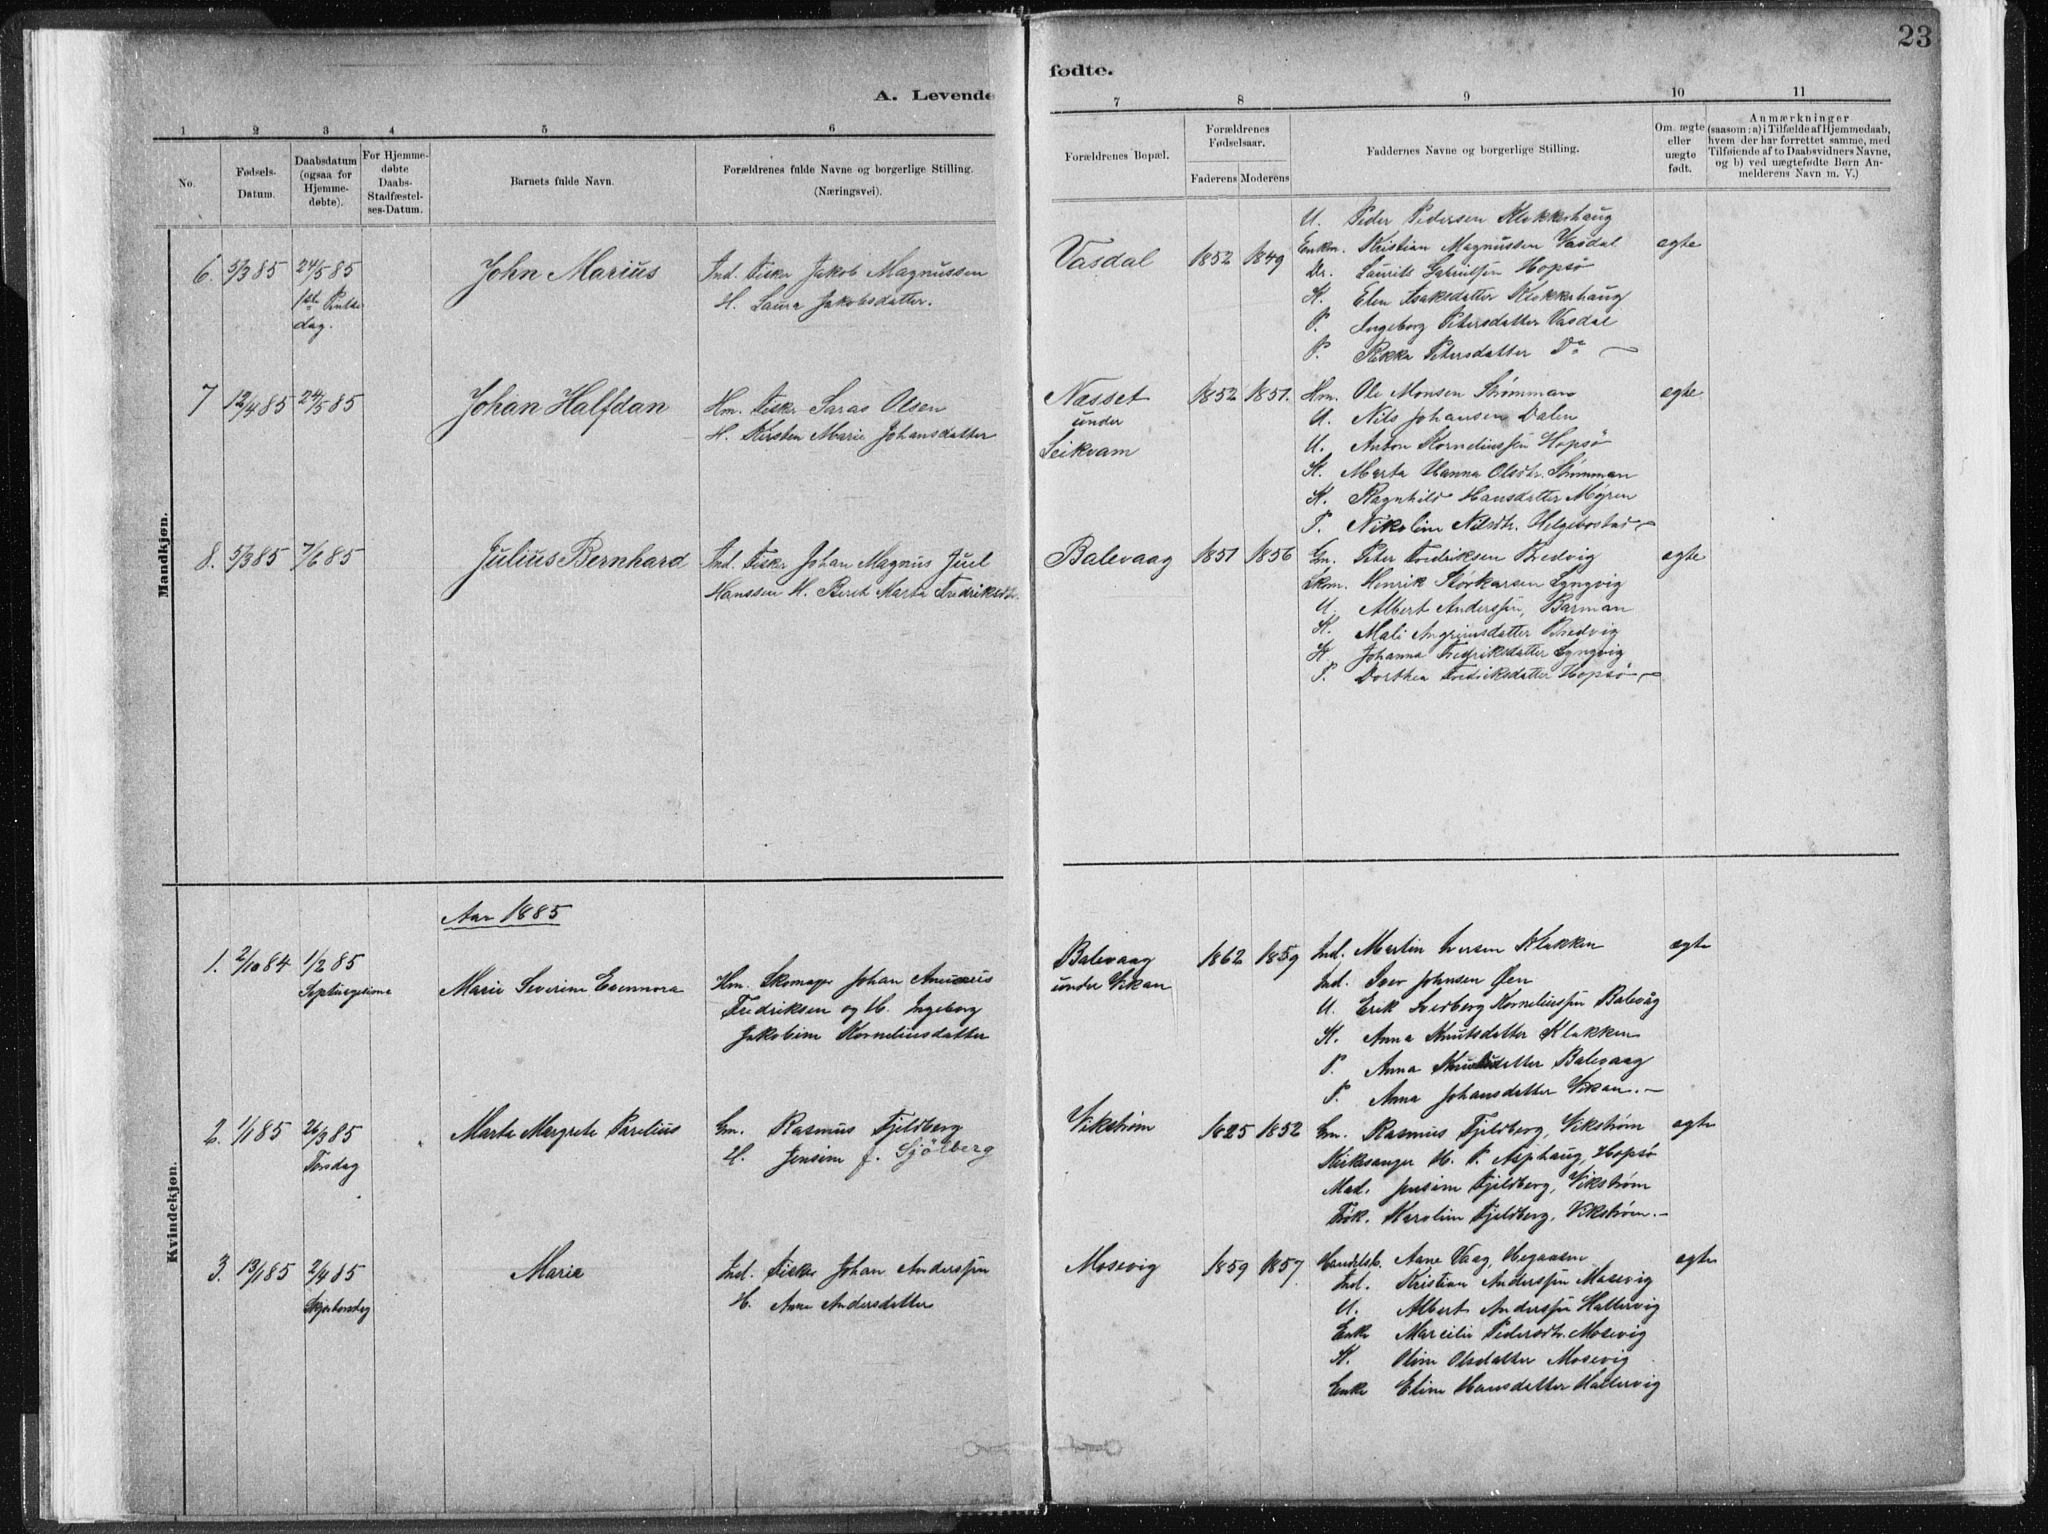 23
A. Levende fødte.
1 2 3 4 5 6 7 8 9 10 11
No.
Fødsels-Datum.
Daabsdatum (ogsaa for Hjemme-døbte).
For Hjemme-døbte Daabs-Stadfæstel-ses-Datum.
Barnets fulde Navn.
Forældrenes fulde Navne og borgerlige Stilling.
(Næringsvei).
Forældrenes Bopæl.
Forældrenes Fødselsaar.
Faderens Moderens
Faddernes Navne og borgerlige Stilling.
Om. ægte eller uægte født.
Anmærkninger
(saasom: a) i Tilfælde af Hjemmedaab,
hvem der har forrettet samme, med
Tilføiende af to Daabsvidners Navne,
og b) ved uægtefødte Børn An-
melderens Navn m. V.)
Mandkjøn.
6. 5/3 85 24/5 85
1ste Pintse
dag.
John Marius
Ind. Fisker Jakob Magnussen
H. Laura Jakobsdatter.
Vasdal 1852 1849
U. Peder Pedersen Klokkerhaug
Enkm. Kristian Magnussen Vasdal
Dr. Laurits Hopsø
K. Elen Isaksdatter Klokkerhaug
P. Ingeborg Petersdatter Vasdal
P. Rikka Petersdatter Do
ægte
7 12/4 85 24/5 85
Johan Halfdan
Hm. Fisker Saras Olsen
H. Kirsten Marie Johansdatter
Næsset
under
Leikvam
1852 1851.
Hm. Ole Monsen Strømman
U. Nils Johansen Dalen
U. Anton Korneliussen Hopsø
K. Marta Hanna Olsdtr. Strømman
K. Ragnhild Hansdatter Myren
P. Nikoline Nilsdtr. Helgebostad
ægte
8. 5/3 85 7/6 85
Julius Bernhard
Ind. Fisker Johan Magnus Juel
Hanssen H. Beret Marta Fredriksdtr.
Balevaag 1851 1856
Gm. Peter Fredriksen Bredvig
Enkm. Henrik Størkarsen Lyngvig
U. Albert Anderssen, Barman
K. Mali Angrimsdatter Bredvig
K. Johanna Fredriksdatter Lyngvig
P. Dorthea Fredriksdatter Hopsø
ægte
Kvindekjøn.
Aar 1885
1. 2/10 84 1/2 85
Septuagesima
Marie Severine Evennora
Hm. Skomager Johan
Fredriksen og H. Ingeborg
Jakobine Korneliusdatter
Balevaag
under Vikan
1862 1859
Ind. Martin Iversen Klakken
Ind. Iver Johnsen Øen
U. Erik Sverdberg Korneliussen Balevåg
K. Anna Knutsdatter Klakken
P. Anna Knutsdatter Balevaag
P. Anna Johansdatter Vikan.
ægte
2. 1/1 85 26/3 85
Torsdag
Marta Margrete Parelius
Gm. Rasmus Fjeldberg
H. Jensine f. Sjölberg
Vikstrøm 1825 1852
Gm. Rasmus Fjeldberg, Vikstrøm
Kirkesanger H. P. Asphaug, Hopsø
Mad. Jensine Fjeldberg, Vikstrøm
Frøk. Karoline Fjeldberg, Vikstrøm.
ægte
3. 13/1 85 2/4 85
Skjertorsdag
Marie
Ind. Fisker Johan Anderssen
H. Anne Andersdatter
Mosevig 1859 1857
Handelsb. Aane Vaag,
Ind. Kristian Anderssen Mosevig
U. Albert Anderssen Hallervig
Enke Marcelie Pedersdtr. Mosevig
K. Oline Olsdatter Mosevig
Enke Eline Hansdatter Hallervig
ægte